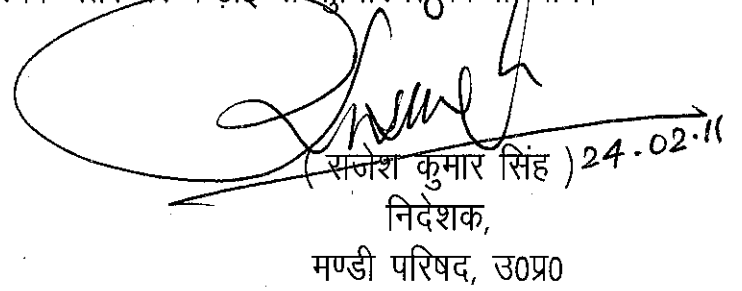 (राजेश कुमार सिंह) 24.02.11
निदेशक,
मण्डी परिषद, उ0प्र0